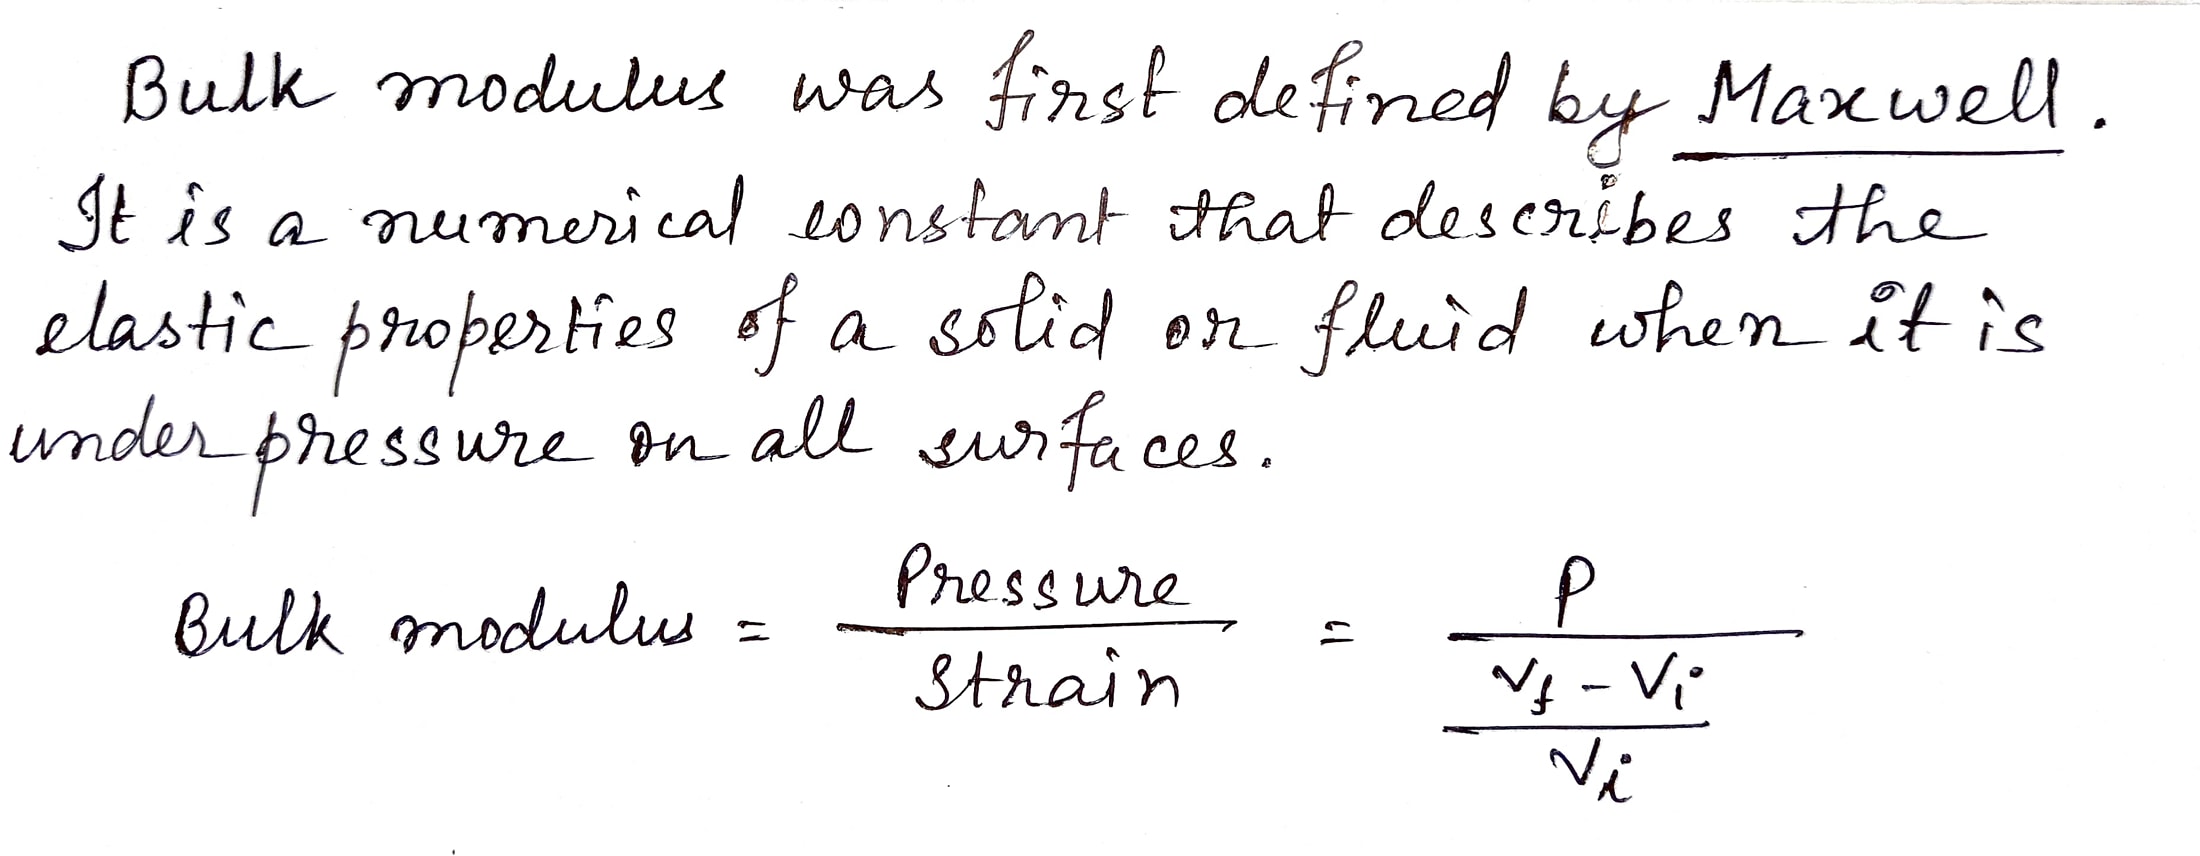 Bulk modulus was first defined by Maxwell.
It is a numerical constant that describes the
elastic properties of a solid or fluid when it is
under pressure on all surfaces.
Bulk modulus = Pressure / Strain = P / ((Vf - Vi) / Vi)